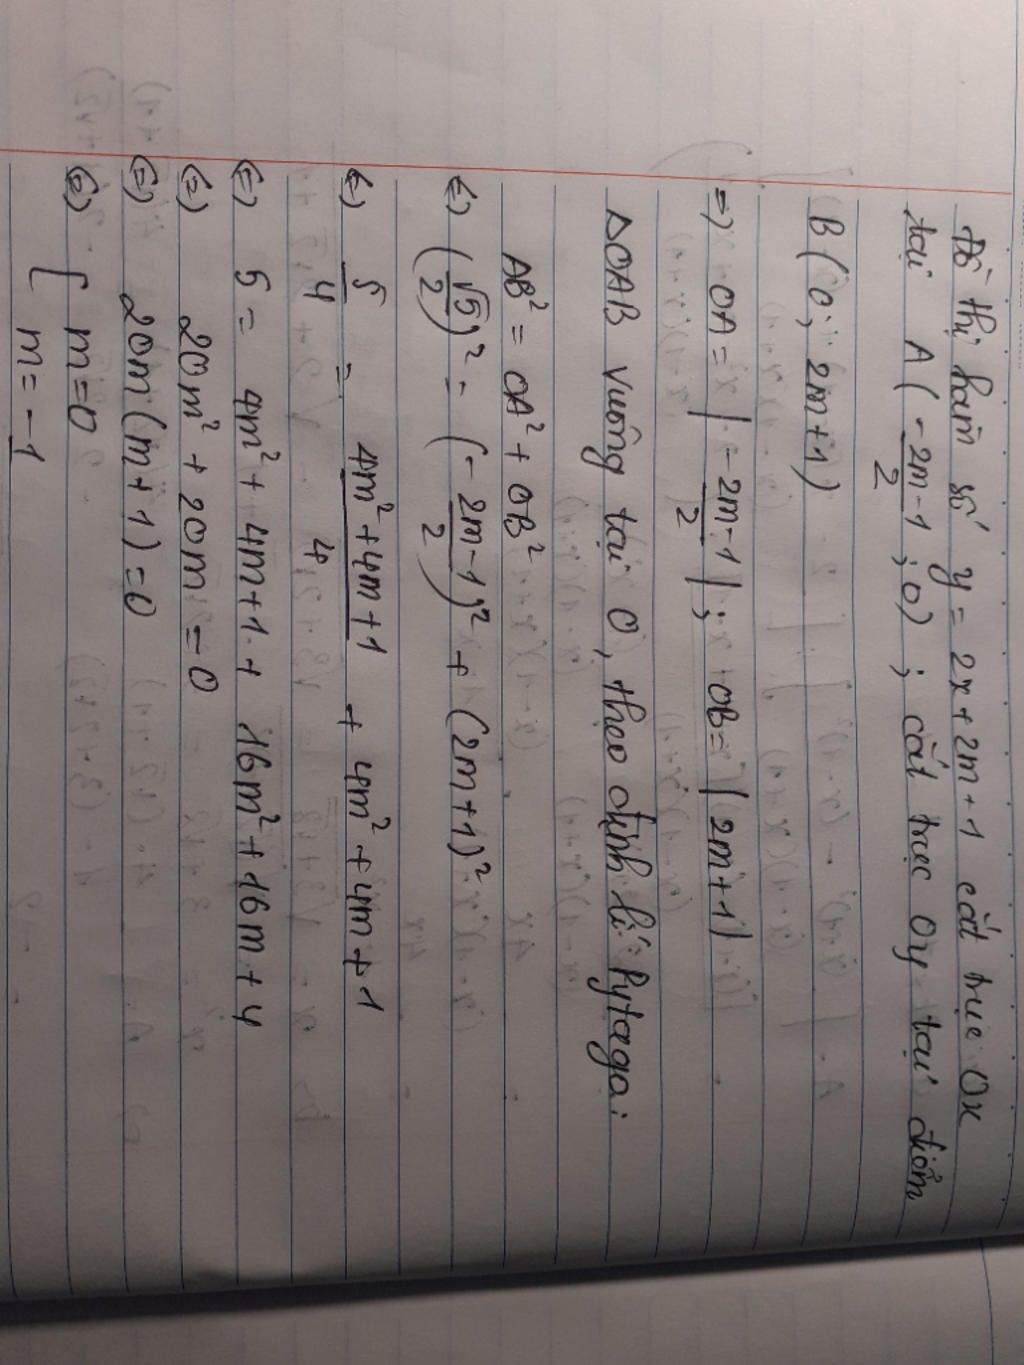 Đồ thị hàm số y = 2x + 2m + 1 cắt trục Ox
tại A ( -2m-1/2 ; 0 ) ; cắt trục Oy tại điểm
B ( 0 ; 2m+1 )
=> OA = | -2m-1/2 | ; OB = | 2m+1 |
ΔOAB vuông tại O, theo định lí Pytago:
AB² = OA² + OB²
(=) (√5/2)² = ( -2m-1/2 )² + (2m+1)²
(=) 5/4 = 4m²+4m+1/4 + 4m² + 4m + 1
(=) 5 = 4m² + 4m+1 + 16m² + 16m + 4
(=) 20m² + 20m = 0
(=) 20m (m+1) = 0
(=) [ m = 0
m = -1